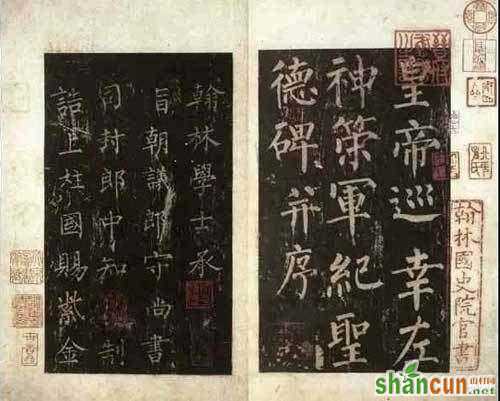 皇帝巡幸左
神策軍紀聖
德碑并序
翰林學士承
旨朝議郎守尚書
司封郎中知制
誥上柱國賜紫金
翰林國史院官書
shancun.net
山村网